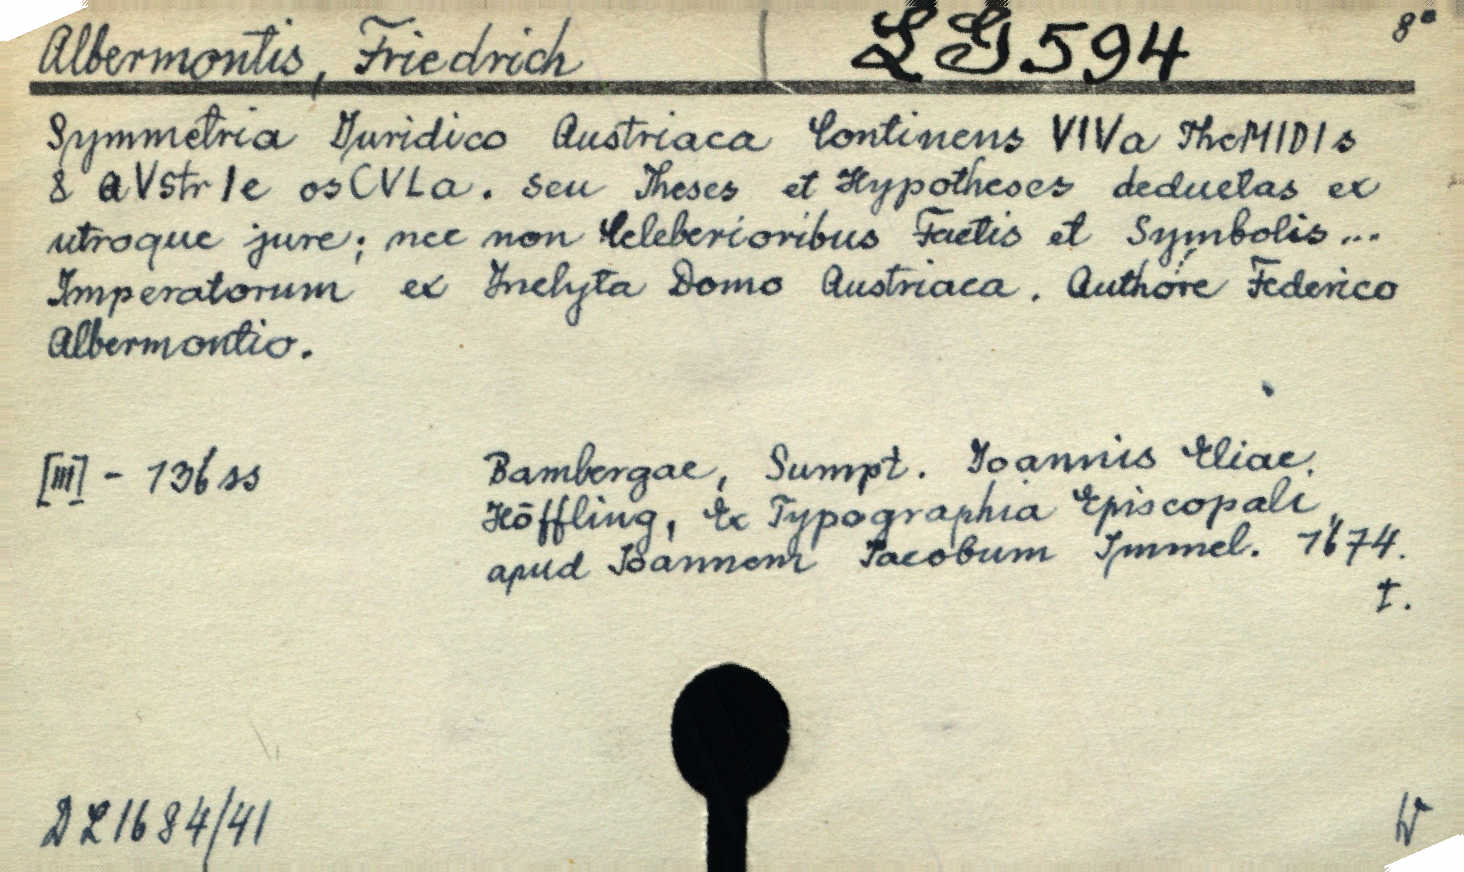 Albermontis, Friedrich LG 594 8°
Symmetria Juridico Austriaca Continens VIVa TheMIDIs
& aVstrIe osCVLa. seu Theses et Hypotheses deductas ex
utroque jure; nec non Celeberioribus Factis et Symbolis...
Imperatorum ex Inclyta Domo Austriaca. Authore Federico
Albermontio.
[III] - 136 ss
Bambergae, Sumpt. Joannis Eliae.
Höffling, Ex Typographia Episcopali,
apud Joannem Jacobum Immel. 1674.
t.
DL 1684/41
W